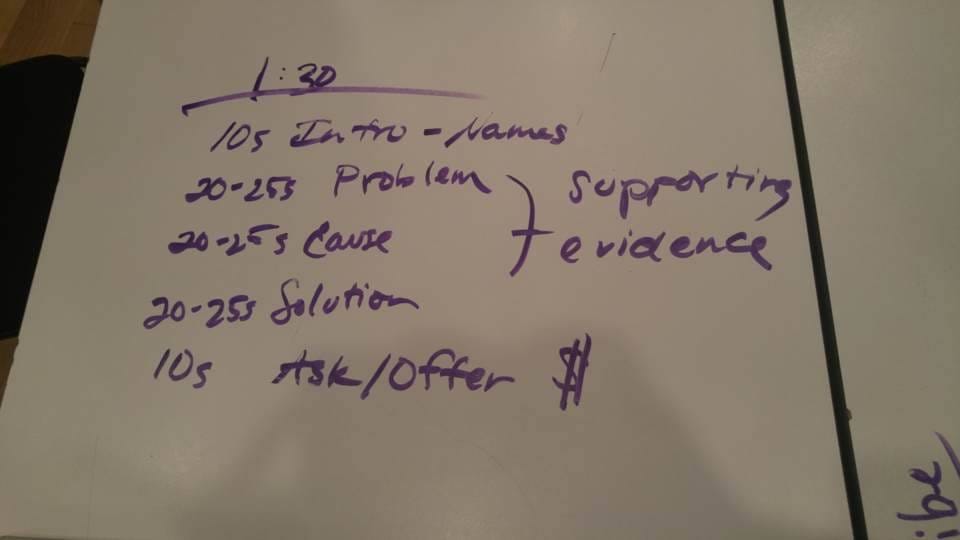 1:30
10s Intro - Names
20-25s Problem
20-25s Cause
supporting
evidence
20-25s Solution
10s Ask/Offer $
ibe